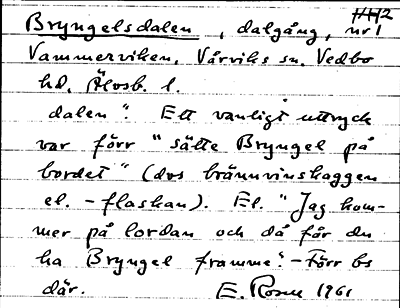 Bryngelsdalen, dalgång, nr 1
Vammerviken. Vårviks sn. Vedbo
hd. Älvsb. l.
dalen". Ett vanligt uttryck
var förr "sätte Bryngel på
bordet" (dvs brännvinskaggen
el. -flaskan). El. "Jag kom-
mer på lordan och då får du
ha Bryngel framme". - Förr bs
där. E. Rosne 1961